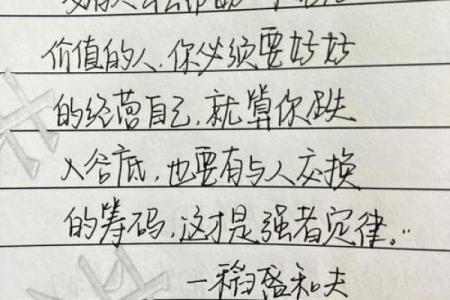 价值的人,你必须要好好
的经营自己,就算你跌
入谷底,也要有与人交换
的筹码,这才是强者定律。
—稻盛和夫